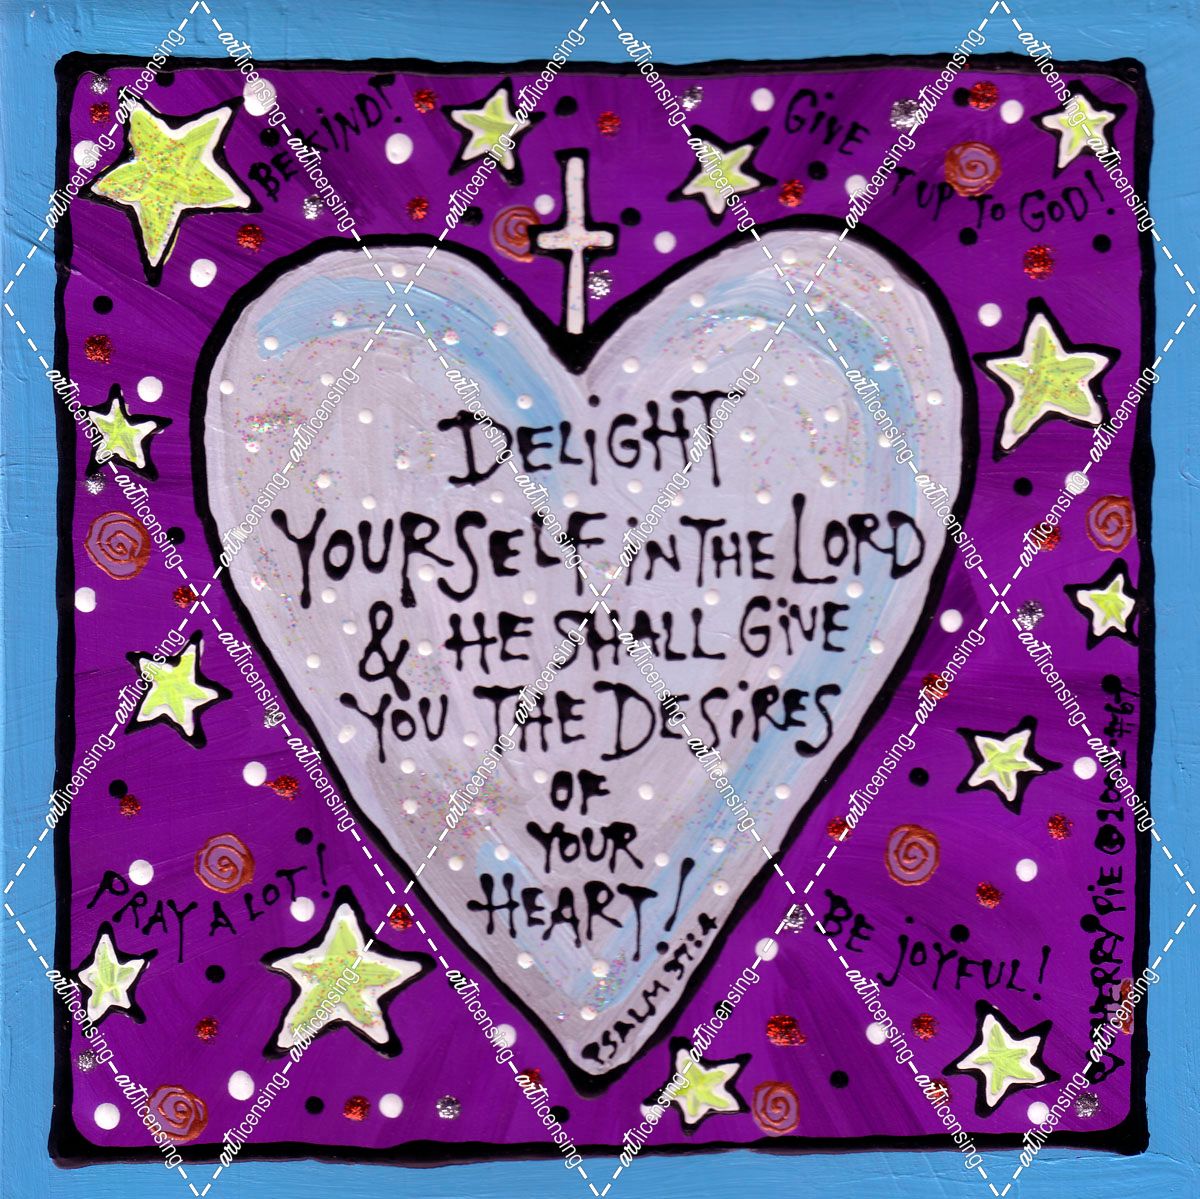 BE KIND!
GIVE
IT UP TO GOD!
DELIGHT
YOURSELF IN THE LORD
& HE SHALL GIVE
YOU THE DESIRES
OF
YOUR
HEART!
PSALM 37:4
PRAY A LOT!
BE JOYFUL!
SHERRY PIE ©
artlicensing